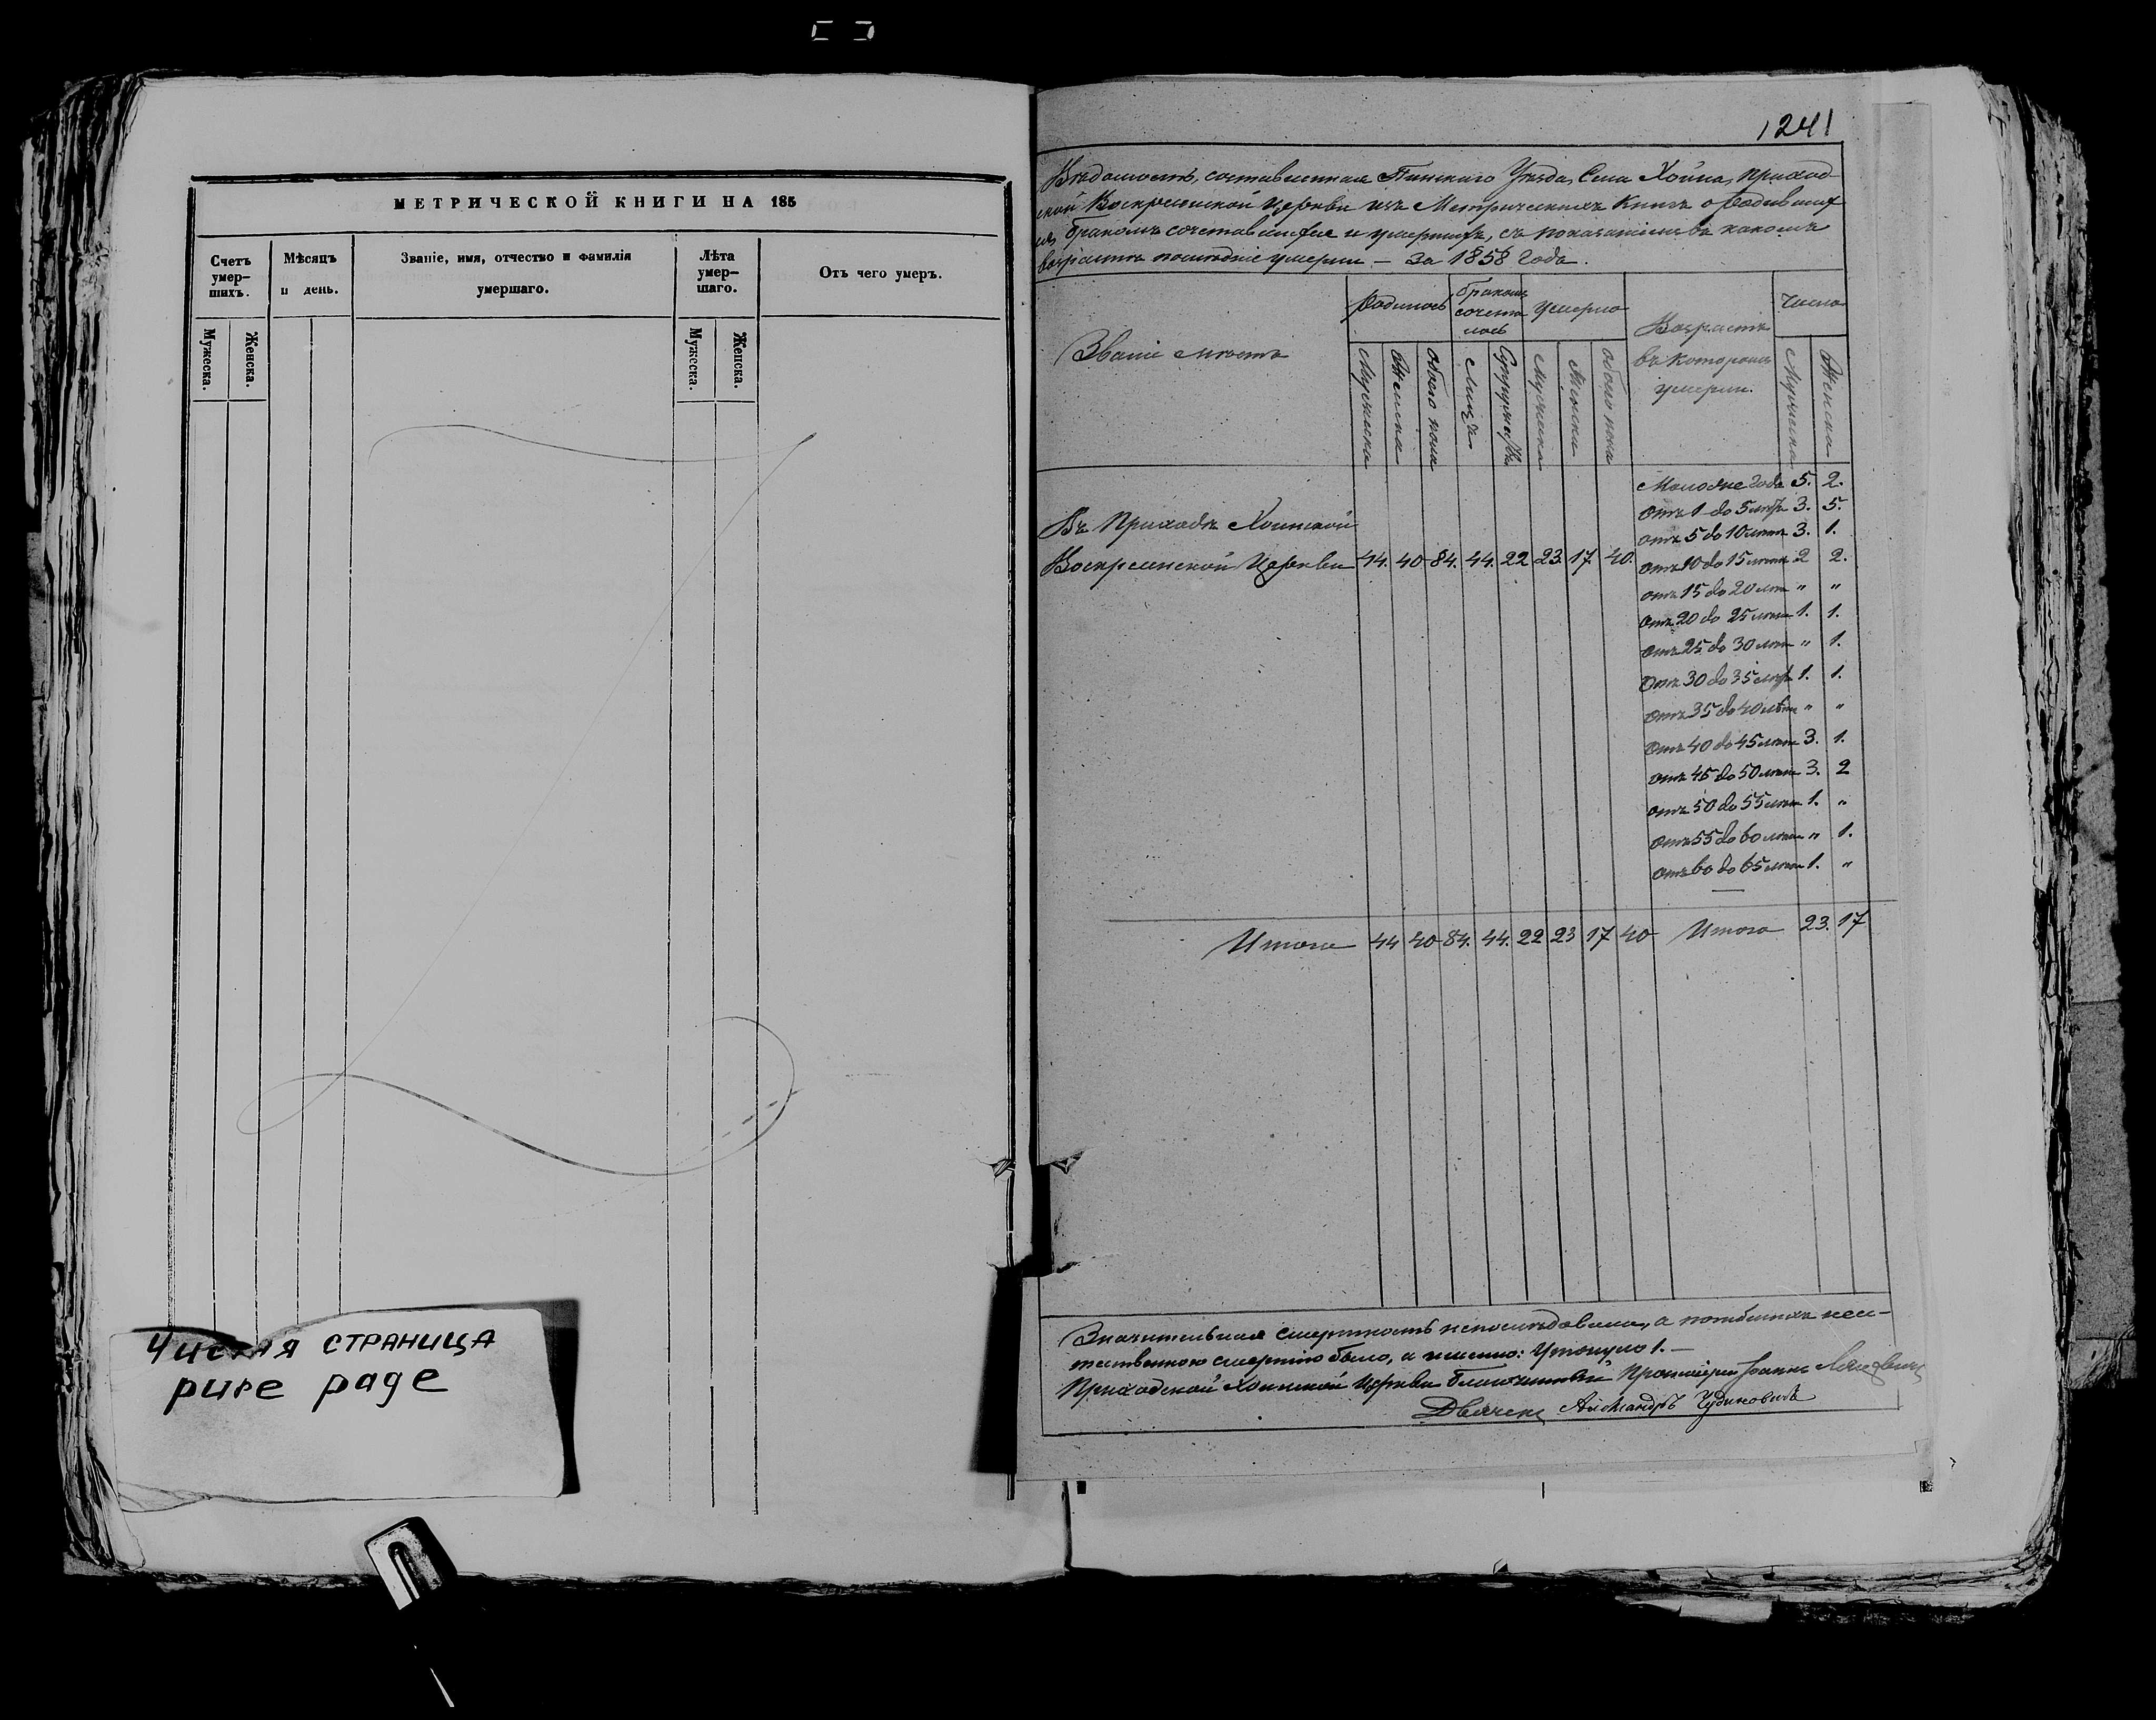 МЕТРИЧЕСКОЙ КНИГИ НА 185
Счетъ умер-шихъ.
Мѣсяцъ и день.
Званіе, имя, отчество и фамилія умершаго.
Лѣта умер-шаго.
Отъ чего умеръ.
Мужеска.
Женска.
Мужеска.
Женска.
Чистая СТРАНИЦА
pure page
1241
Вѣдомость, составленная Пинскаго Уѣзда, Села Хойна, приход-
ской Воскресенской Церкви изъ Метрическихъ Книгъ о родивших
ся бракомъ сочетавшихся и умершихъ, съ показаніемъ въ какомъ
возрастѣ послѣдніе умерли – За 1858 года.
Званіе мѣстъ
родилось
бракомъ сочета лось
умерло
Возрастъ въ которомъ умерли.
число
Мужеска
Женска
обоего пола
Лицъ
Супружествъ
Мужеска
Женска
обоего пола
Мужеска
Женска
Моложе года 5. 2.
отъ 1 до 5 лѣтъ 3. 5.
отъ 5 до 10 лѣтъ 3. 1.
Въ Приходѣ Хоинской
Воскресенской Церкви 44. 40 84. 44. 22 23. 17. 40. отъ 10 до 15 лѣтъ 2 2.
отъ 15 до 20 лѣтъ " "
отъ 20 до 25 лѣтъ 1. 1.
отъ 25 до 30 лѣтъ " 1.
отъ 30 до 35 лѣтъ 1. 1.
отъ 35 до 40 лѣтъ " "
отъ 40 до 45 лѣтъ 3. 1.
отъ 45 до 50 лѣтъ 3. 2
отъ 50 до 55 лѣтъ 1. "
отъ 55 до 60 лѣтъ " 1.
отъ 60 до 65 лѣтъ 1. "
Итого 44 40 84. 44. 22 23 17 40 Итого 23. 17
Значительная смертность непослѣдовала, а погибшихъ неес-
тественною смертію было, а именно: Утонуло 1. –
Приходской Хоинской Церкви Благочинный Протоіерей Іоаннъ
Дьячекъ Александръ Чудиновичъ